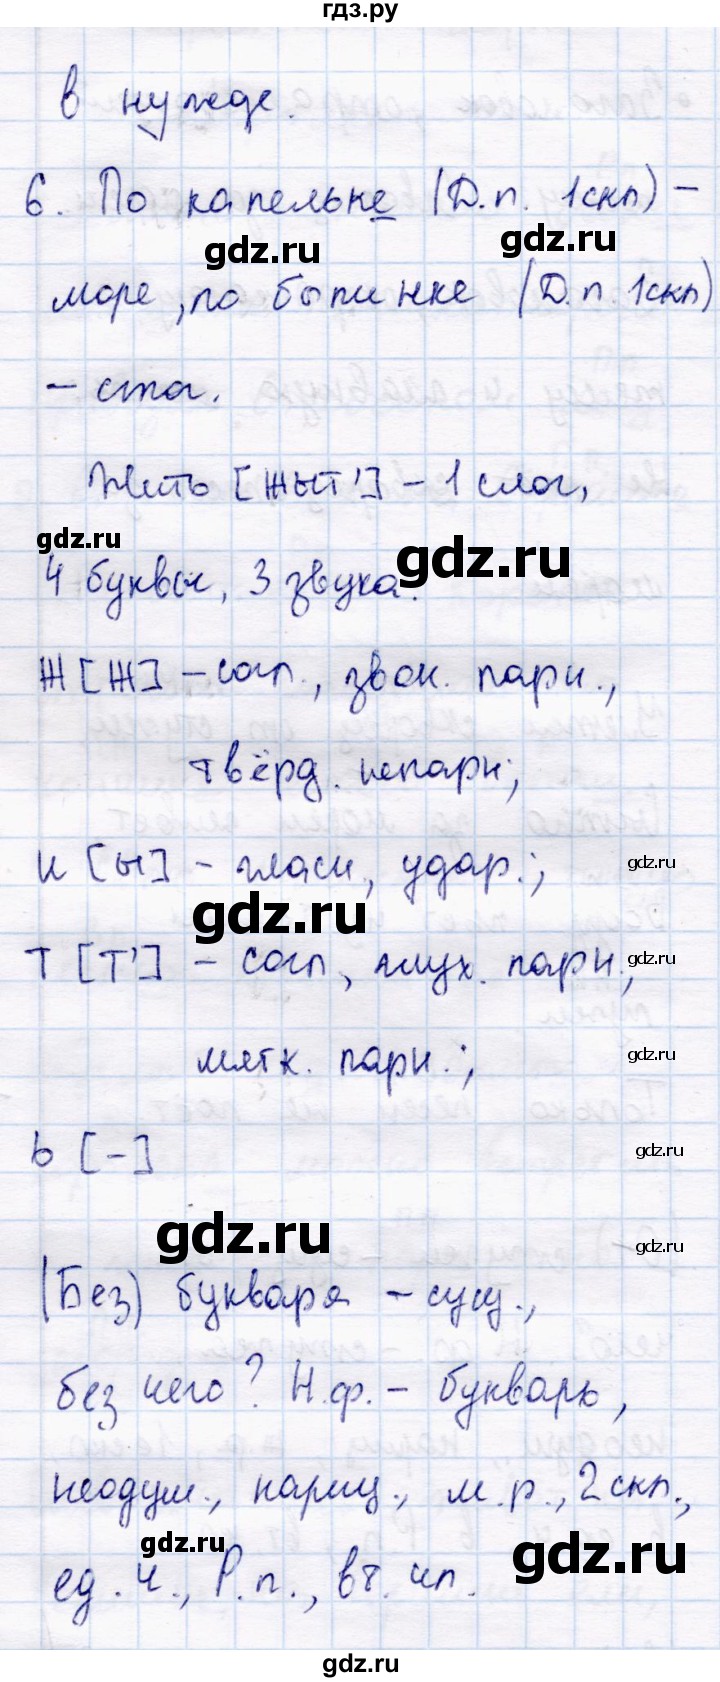 гдз.ру
в нужде.
6. По капельке (Д.п. 1скл) –
gdz.ru
gdz.ru
море, по былинке (Д.п. 1скл)
– стог.
Жить [жыт'] – 1 слог,
gdz.ru
gdz.ru
4 буквы, 3 звука.
Ж [ж] – согл., звон. парн.,
твёрд. непарн;
и [ы] – гласн, удар.;
gdz.ru
gdz.ru
т [т'] – согл, глух. парн.,
gdz.ru
мягк. парн.;
gdz.ru
ь [-]
gdz.ru
gdz.ru
gdz.ru
(Без) букваря – сущ.,
без чего? Н.ф. – букварь,
неодуш., нариц., м.р., 2скл.,
gdz.ru
gdz.ru
ед.ч., Р.п., вт. чл.
gdz.ru